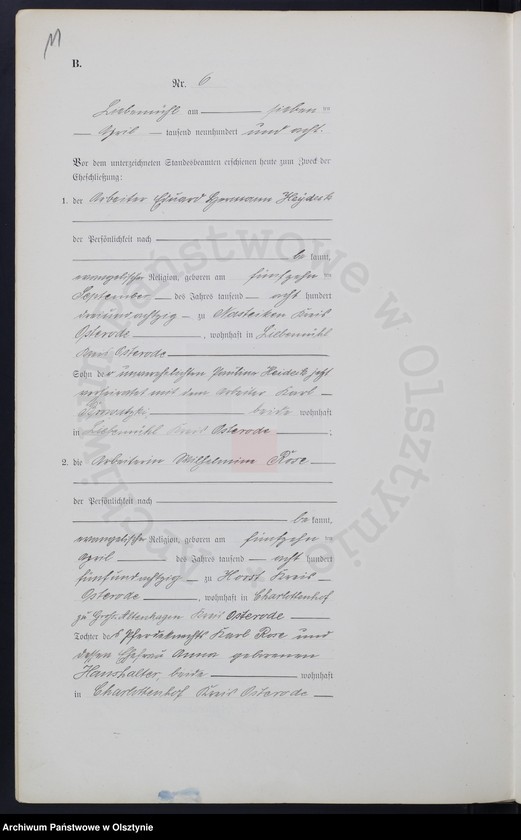 11
B.
Nr. 6
Liebemühl am sieben ten
April tausend neunhundert und acht.
Vor dem unterzeichneten Standesbeamten erschienen heute zum Zweck der
Eheschließung:
1. der Arbeiter Eduard Hermann Heydeck
der Persönlichkeit nach
be kannt,
evangelischer Religion, geboren am fünfzehn ten
September des Jahres tausend acht hundert
dreiundachtzig zu Nasteiken Kreis
Osterode, wohnhaft in Liebemühl
Kreis Osterode
Sohn der unverehelichten Pauline Heideck jetzt
verheiratet mit dem Arbeiter Karl
beide wohnhaft
in Liebemühl Kreis Osterode;
2. die Arbeiterin Wilhelmine Rose
der Persönlichkeit nach
be kannt,
evangelischer Religion, geboren am fünfzehn ten
April des Jahres tausend acht hundert
fünfundachtzig zu Horst Kreis
Osterode, wohnhaft in Charlottenhof
zu Groß Altenhagen Kreis Osterode
Tochter des Pferdeknechts Karl Rose und
dessen Ehefrau Anna geborenen
Haushalter, beide wohnhaft
in Charlottenhof Kreis Osterode
Archiwum Państwowe w Olsztynie
Archiwum Państwowe w Olsztynie